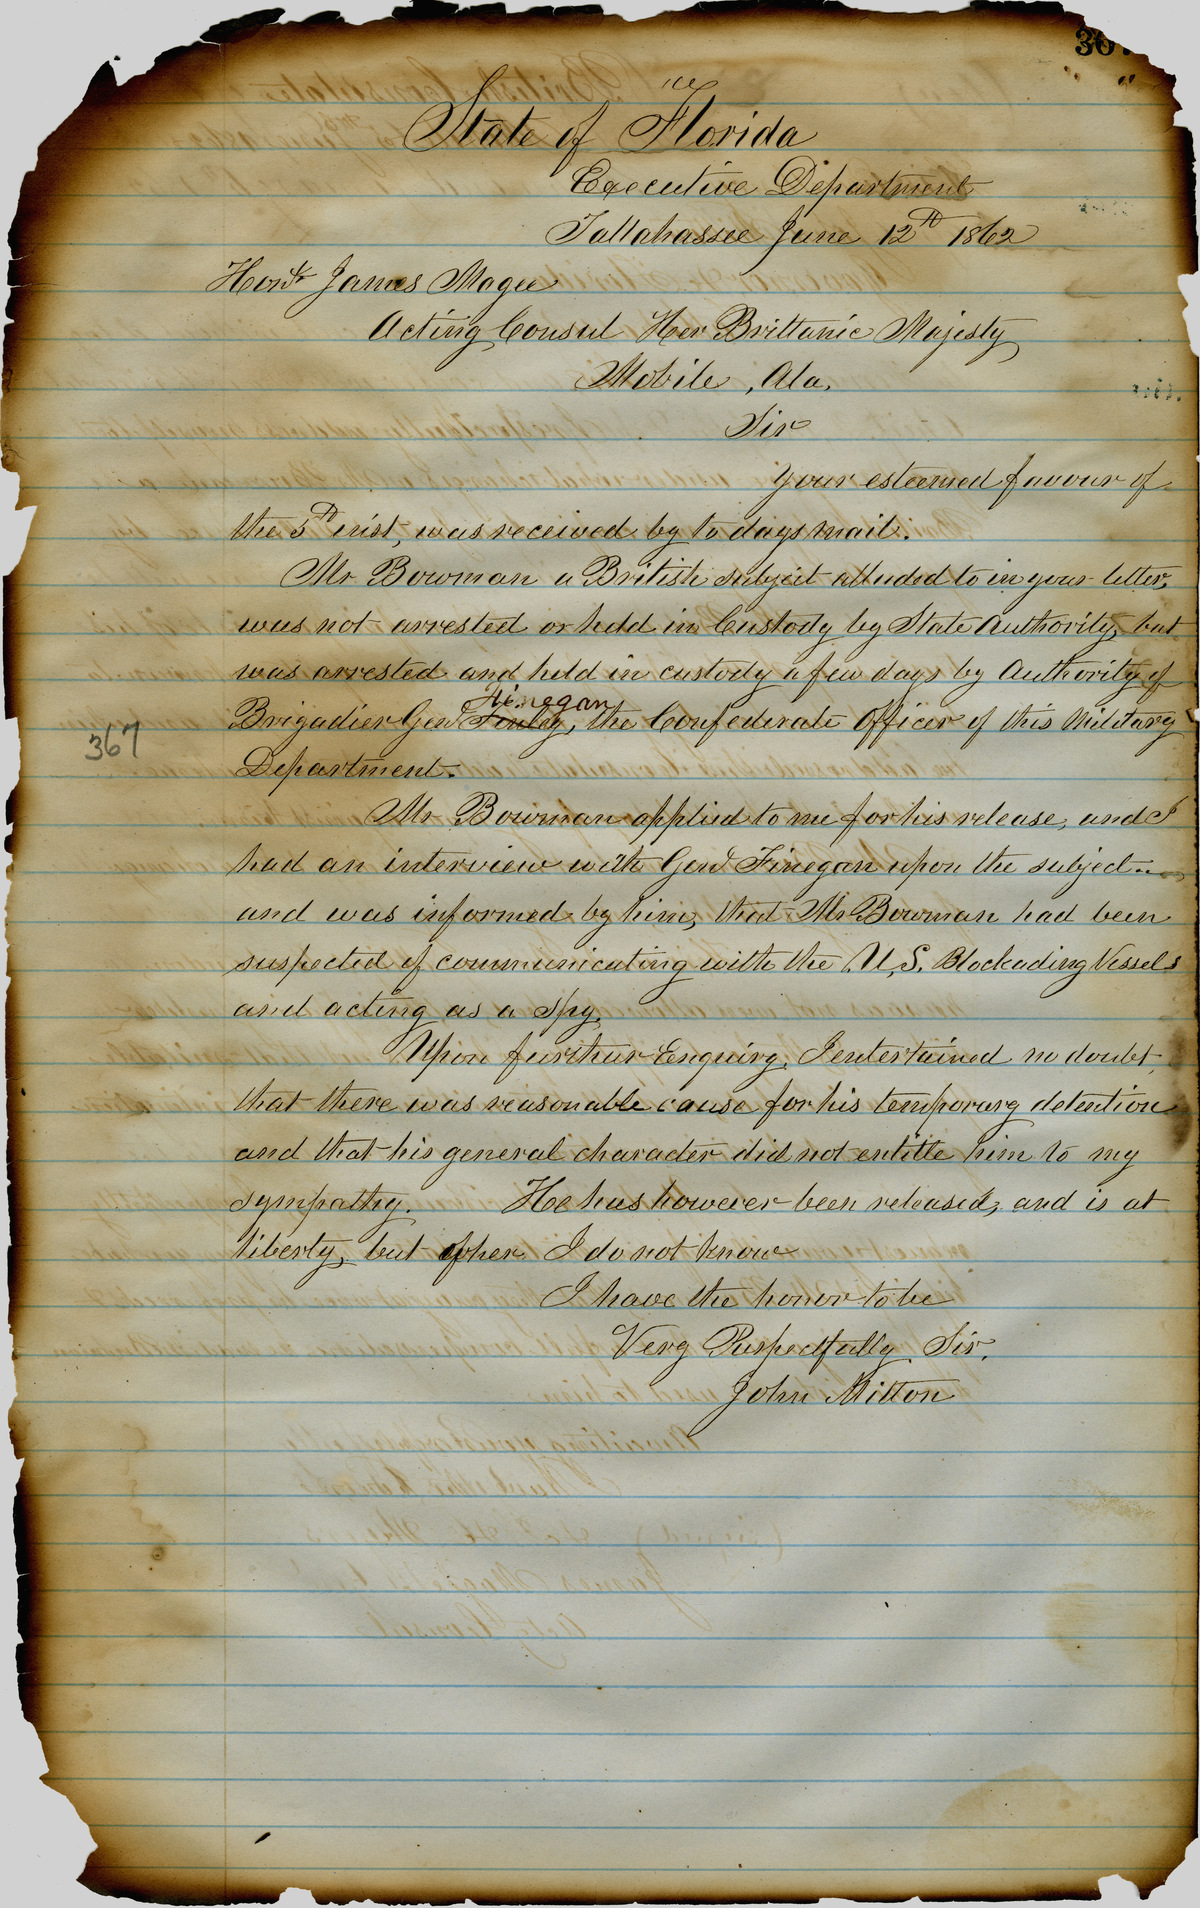 State of Florida
Executive Department
Tallahassee June 12th 1862
Honl James Magee
Acting Consul Her Brittanic Majesty
Mobile, Ala,
Sir
Your esteemed favour of
the 5th inst, was received by to days mail.
Mr Bowman a British subject alluded to in your letter,
was not arrested or held in Custody by State Authority, but
was arrested and held in custody a few days by Authority of
Finegan
Brigadier Genl Finley, the Confederate Officer of this Military
367
Department.
Mr Bowman applied to me for his release, and I
had an interview with Genl Finegan upon the subject
and was informed by him, that Mr Bowman had been
suspected of communicating with the U, S. Blockading Vessels
and acting as a spy.
Upon further Enquiry, I entertained no doubt,
that there was reasonable cause for his temporary detention
and that his general character did not entitle him to my
sympathy. He has however been released, and is at
liberty, but I do not know
I have the honor to be
Very Respectfully Sir,
John Milton